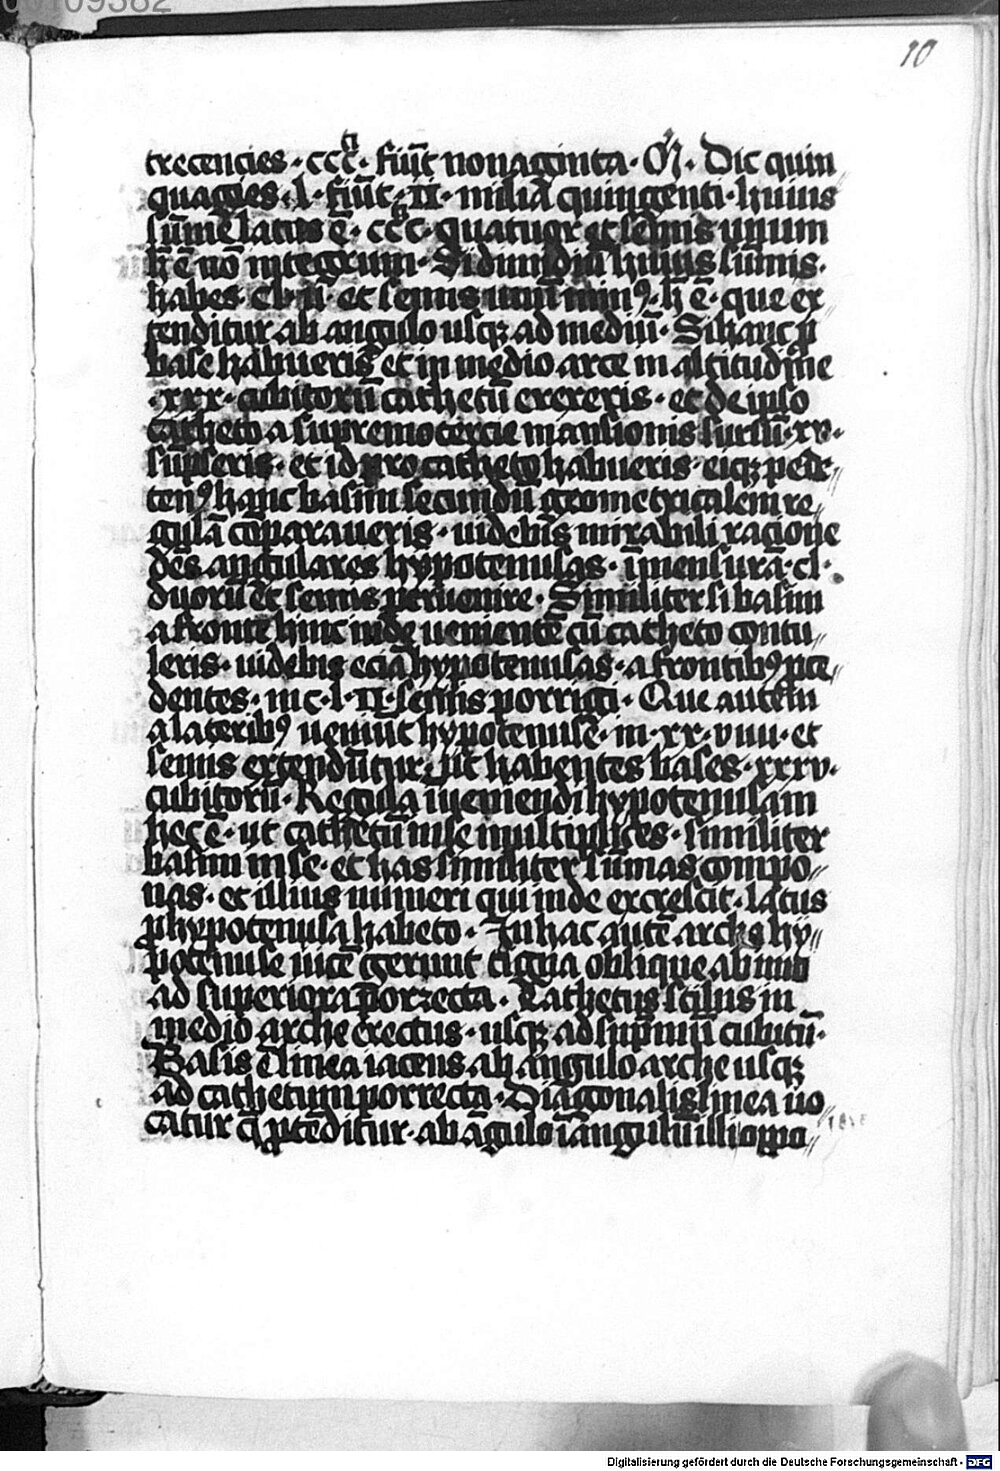 00109382
10
trecencies · ccc̄ · fiūt nonaginta · M̄ · Dic quin
quagies · l · fiūt · II · milia quingenti · huius
sūme latus ē · ccc · quatuor et semis unum
h̄ ē nō integrum · Si dimidiū huius sūmis ·
habes · cl · ii · et semis unū min⁹ · h̄ ē · que ex
tenditur ab angulo usqꝫ ad mediū · Si hanc ꝑ
base habueris et in medio arce in altitudine
· xxx · cubitorū cathetū erexeris · et de ipso
catheto a supremo tercie mansionis sursū · xv ·
sūpseris · et id pro catheto habueris · eiqꝫ
ten⁹ hanc basim secundū geometricalem re
gulā cōparaueris · uidebis mirabili racione
dēs angulares hypotenusas · ī mensurā · cl ·
duorū et semis peruenire · Similiter si basim
a fronte hinc inde uenientē cū catheto contu〃
leris · uidebis eciā hypotenusas · a frontib⁹ ꝓce〃
dentes · in c · l · II · semis porrigi · Que autem
a laterib⁹ ueniūt hypotenuse · in · xx · viiii · et
semis extendūtur · ut habentes bases · xxxv ·
cubitorū · Regula inueniendi hypotenusam
hec ē · ut cathetū in se multiplices · similiter
basim in se · et has similiter sūmas compo〃
nas · et illius numeri qui inde excrescit · latus
ꝓ hypotenusa habeto · In hac autē archa hy〃
potenuse uicē gerunt tigna oblique ab imo
ad superiora porrecta · Cathetus stilus in
medio arche erectus · usqꝫ ad supmū cubitū ·
Basis ē linea iacens ab angulo arche usqꝫ
ad cathetum porrecta · Diagonalis linea uo〃
catur q̄ ꝓtēditur · ab āgulo ī angulū illi oppo〃
Digitalisierung gefördert durch die Deutsche Forschungsgemeinschaft - DFG